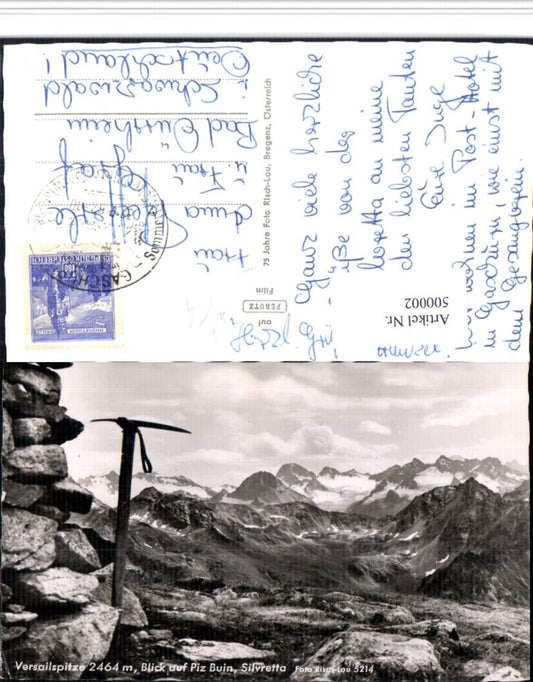 Ganz viele herzliche
von der
an meine
den liebsten Tanten
Eure Inge
wohnen im Post-Hotel
in Gaschurn, wie einst mit
dem Gesangverein.
Artikel Nr.
500002
auf
PERUTZ
Film
75 Jahre Foto Risch-Lau, Bregenz, Österreich
Frau
Anna
u. Frau Graf
Bad Dürrheim
i. Schwarzwald
Deutschland!
GASCHURN
REPUBLIK ÖSTERREICH
Versailspitze 2464 m, Blick auf Piz Buin, Silvretta Foto Risch-Lau 5214